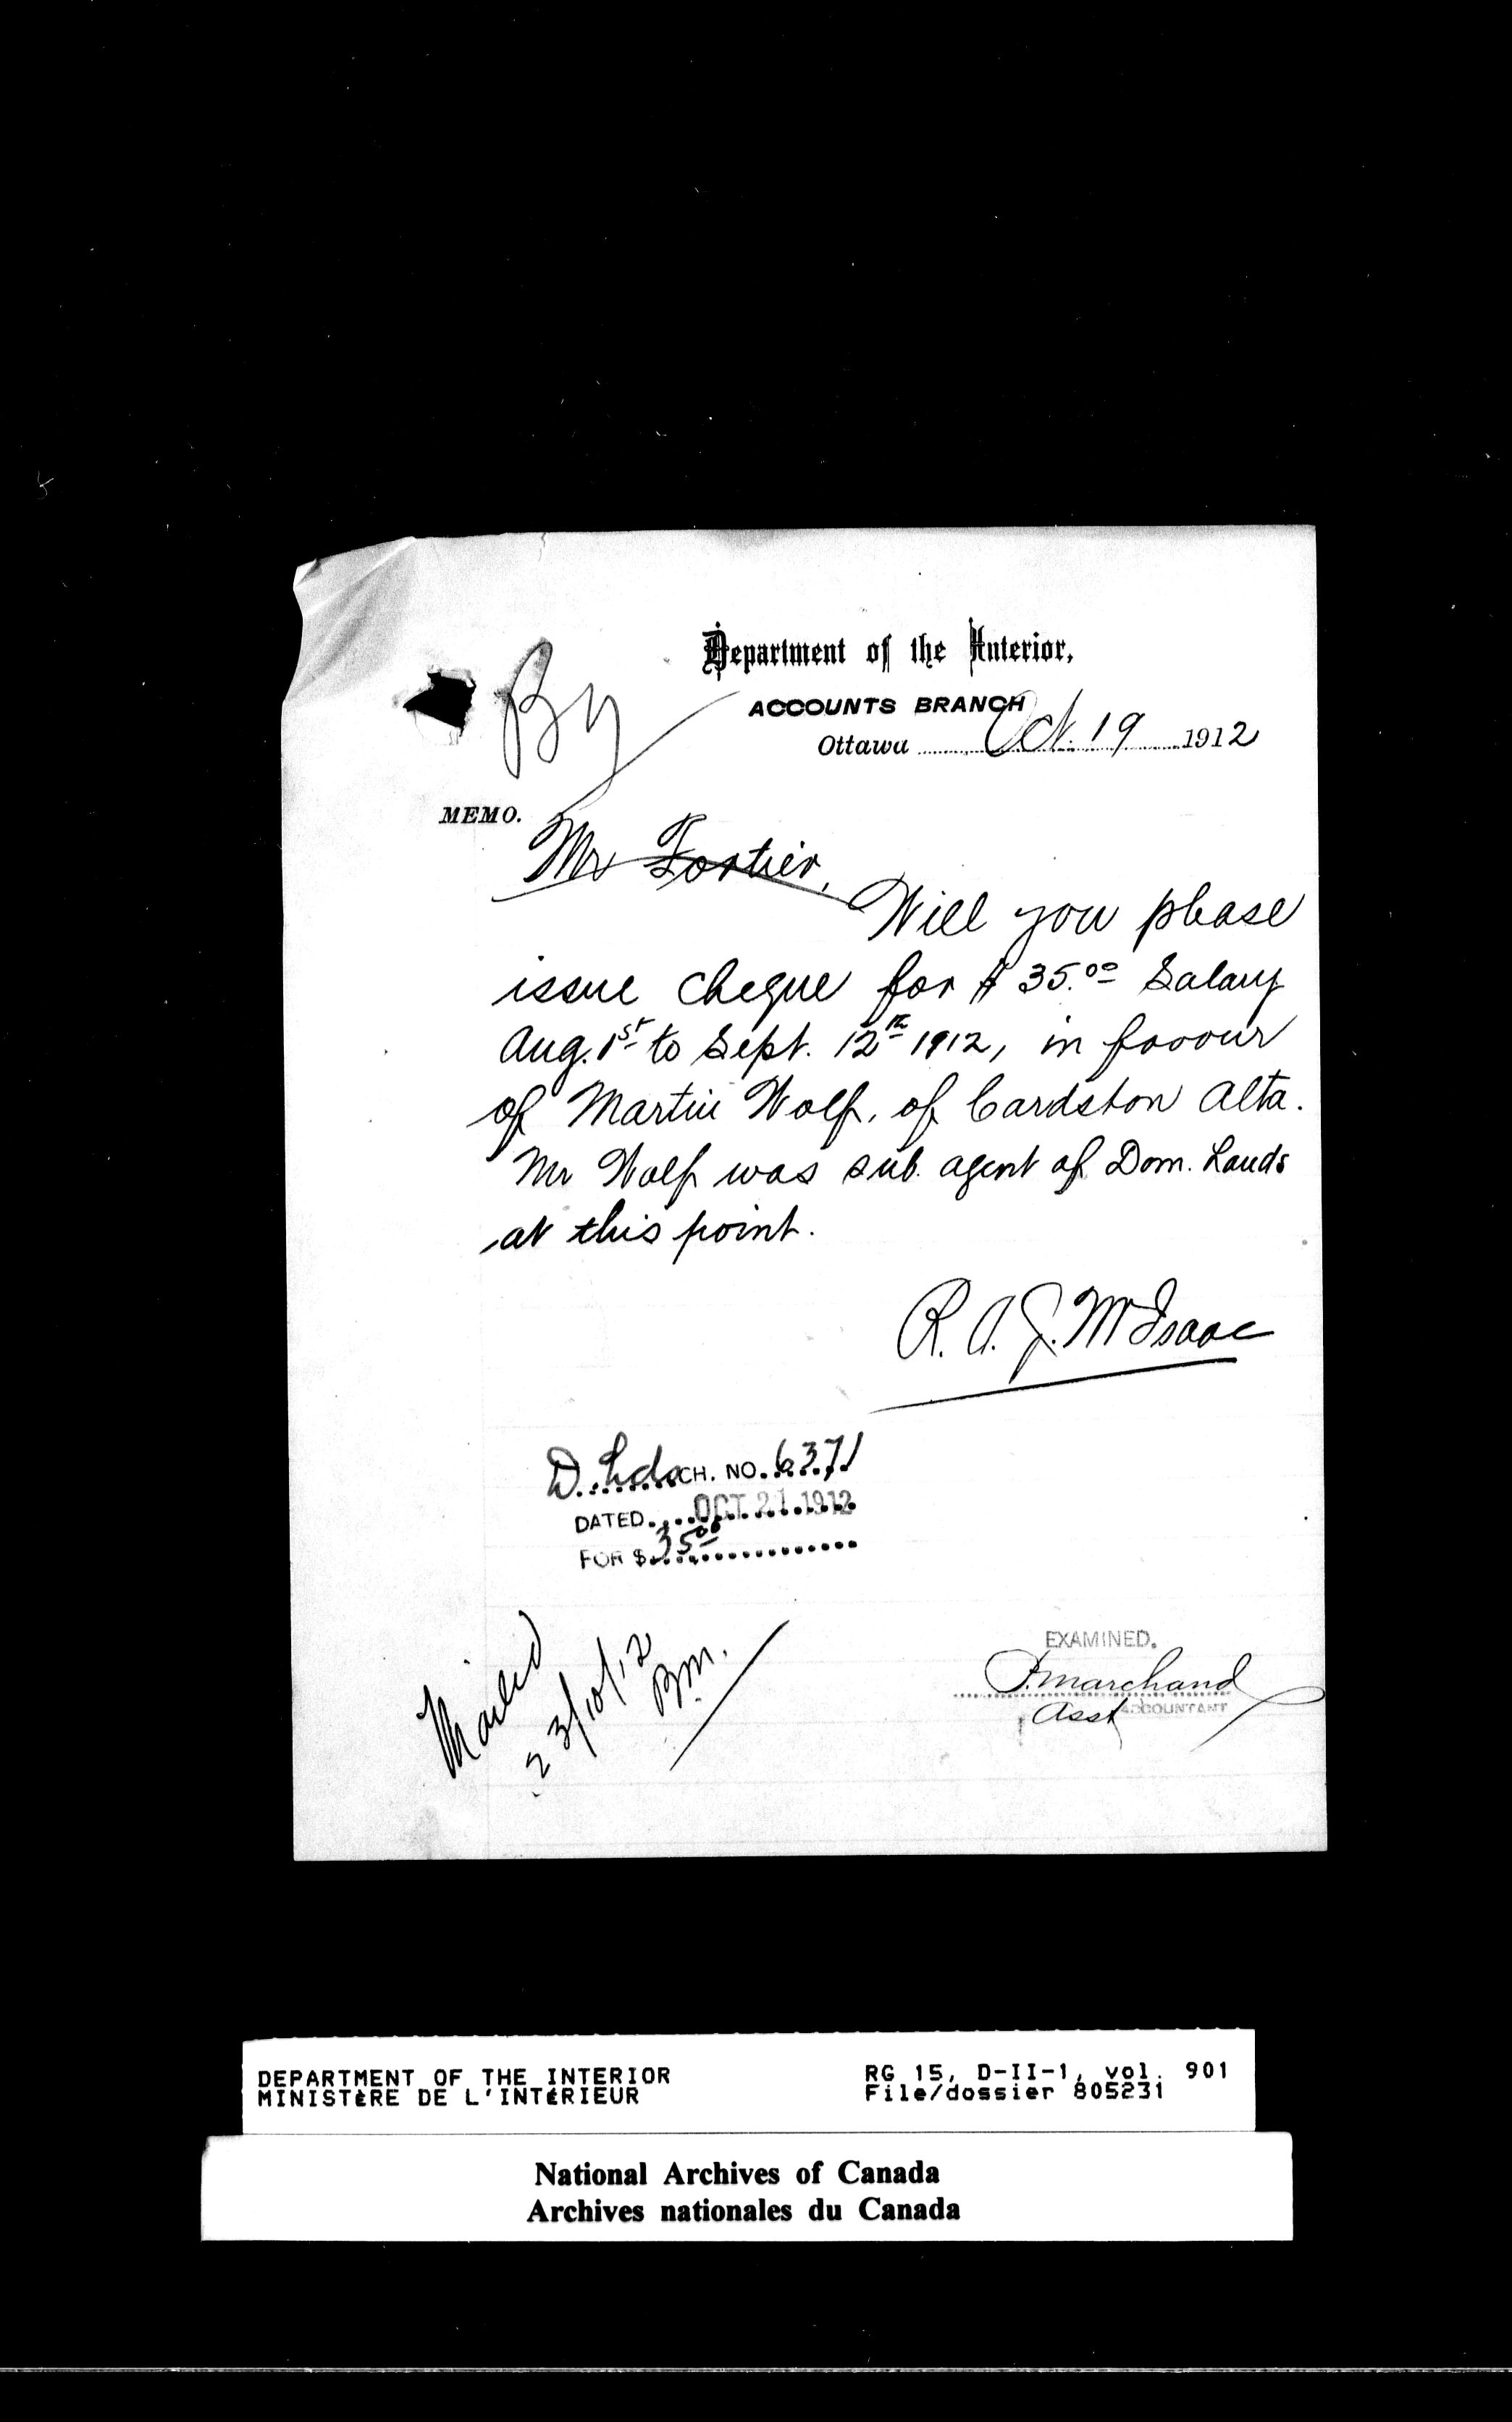 Department of the Interior,
ACCOUNTS BRANCH
By
Ottawa Oct. 19 1912
MEMO.
Mr Fortier,
Will you please
issue cheque for $35.00 Salary
Aug. 1st to Sept. 12th 1912, in favour
of Martin Wolf, of Cardston Alta.
Mr Wolf was sub. agent of Dom. Lands
at this point.
R. A. J. McIsaac
D. Lds CH. NO. 6371
DATED OCT 21 1912
FOR $ 35.00
Mailed
23/10/12
BM.
EXAMINED.
J. Marchand
Asst ACCOUNTANT
DEPARTMENT OF THE INTERIOR
MINISTÈRE DE L'INTÉRIEUR
RG 15, D-II-1, vol. 901
File/dossier 805231
National Archives of Canada
Archives nationales du Canada